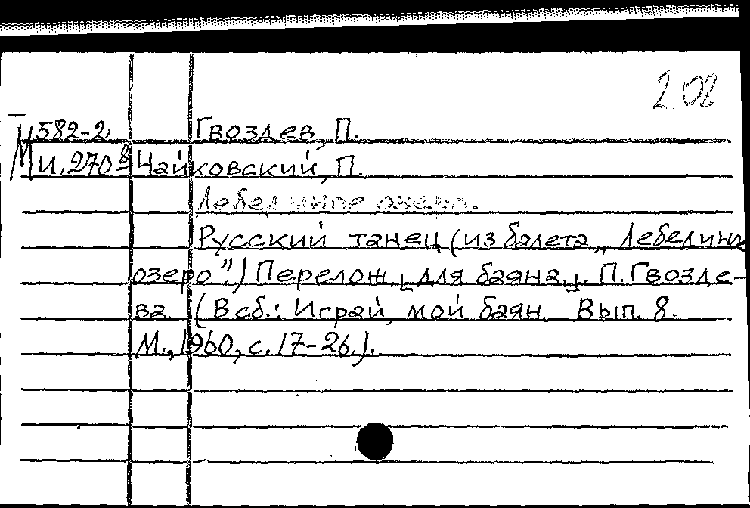 2.02
М 582-2 Гвоздев, П.
И.270 Чайковский, П.
Лебединое озеро.
Русский танец (из балета „Лебедин
озеро".) Перелож. [для баяна.] П. Гвозде-
ва. (В сб.: Играй, мой баян. Вып. 8.
М., 1960, с. 17-26.).